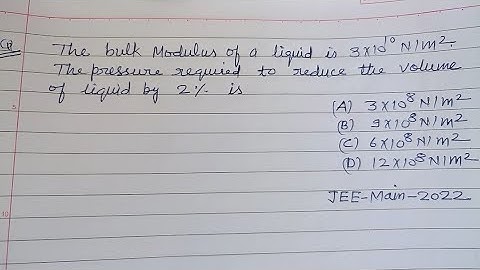 Q
The bulk Modulus of a liquid is 3×10¹⁰ N/m².
The pressure required to reduce the volume
of liquid by 2% is
(A) 3×10⁸ N/m²
(B) 9×10⁸ N/m²
(C) 6×10⁸ N/m²
(D) 12×10⁸ N/m²
JEE-Main-2022